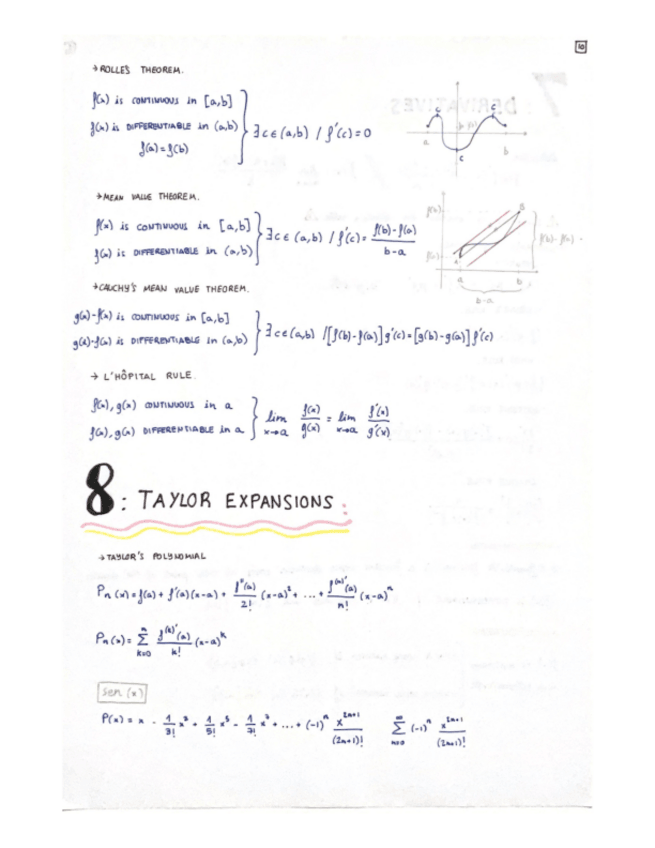 10
→ ROLLE'S THEOREM.
f(x) is CONTINUOUS in [a,b]
f(x) is DIFFERENTIABLE in (a,b) } ∃ c ∈ (a,b) / f'(c) = 0
f(a) = f(b)
c c
a b
c
→ MEAN VALUE THEOREM.
f(x) is CONTINUOUS in [a,b]
f(x) is DIFFERENTIABLE in (a,b) } ∃ c ∈ (a,b) / f'(c) = f(b)-f(a) / b-a
f(b) B
f(b)-f(a)
f(a) A
a b
b-a
→ CAUCHY'S MEAN VALUE THEOREM.
g(x)-f(x) is CONTINUOUS in [a,b]
g(x)-f(x) is DIFFERENTIABLE in (a,b) } ∃ c ∈ (a,b) / [f(b)-f(a)] g'(c) = [g(b)-g(a)] f'(c)
→ L'HÔPITAL RULE.
f(x), g(x) CONTINUOUS in a
f(x), g(x) DIFFERENTIABLE in a } lim x→a f(x)/g(x) = lim x→a f'(x)/g'(x)
8: TAYLOR EXPANSIONS:
→ TAYLOR'S POLYNOMIAL
Pn(x) = f(a) + f'(a)(x-a) + f''(a)/2! (x-a)² + ... + f⁽ⁿ⁾'(a)/n! (x-a)ⁿ
Pn(x) = Σ k=0 n f⁽ᵏ⁾'(a)/k! (x-a)ᵏ
sen(x)
P(x) = x - 1/3! x³ + 1/5! x⁵ - 1/7! x⁷ + ... + (-1)ⁿ x²ⁿ⁺¹/(2n+1)! Σ n=0 ∞ (-1)ⁿ x²ⁿ⁺¹/(2n+1)!